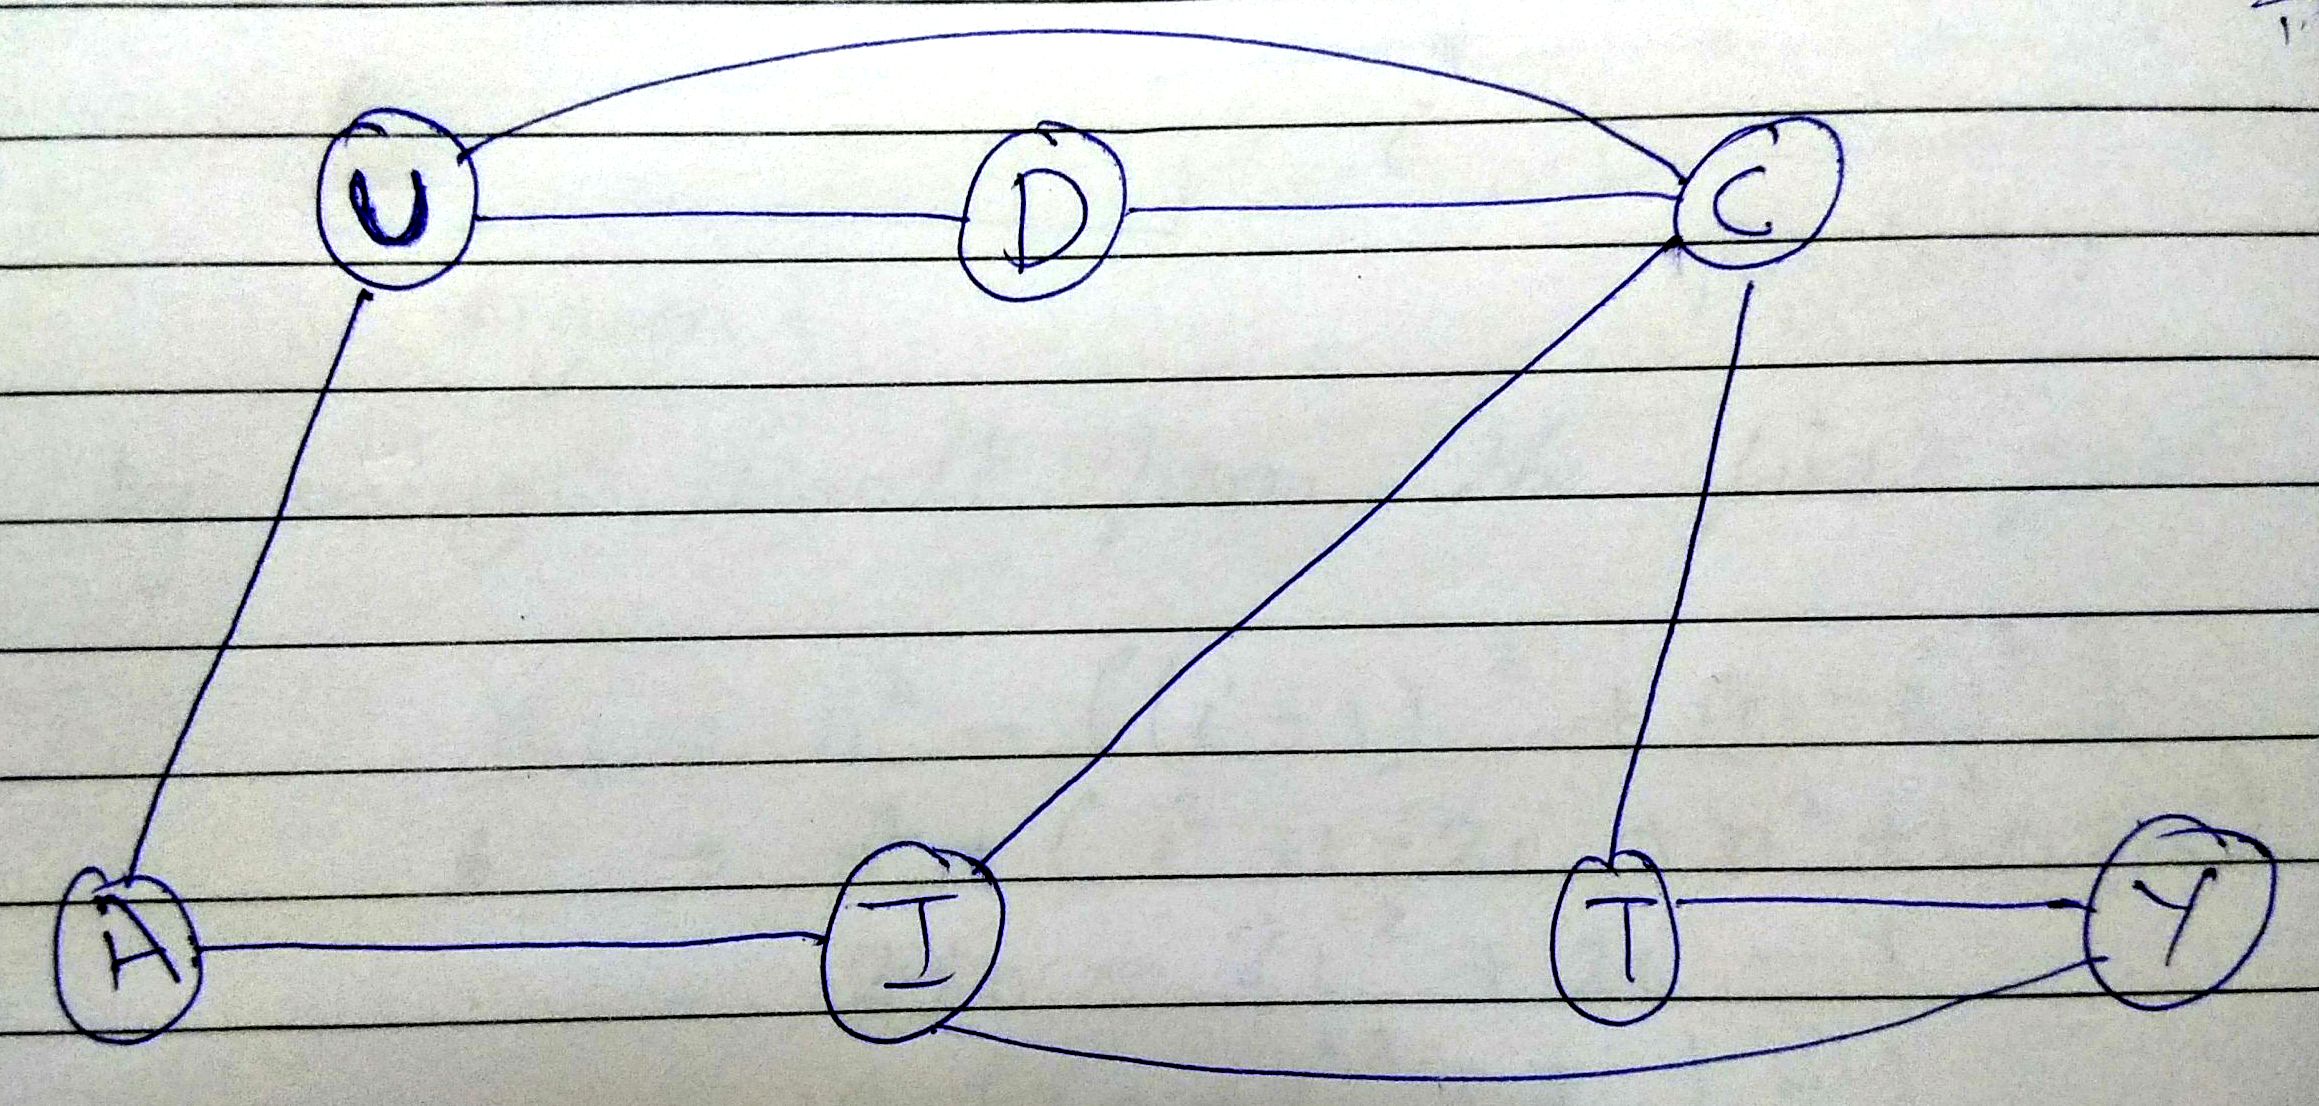 U D C
A I T Y